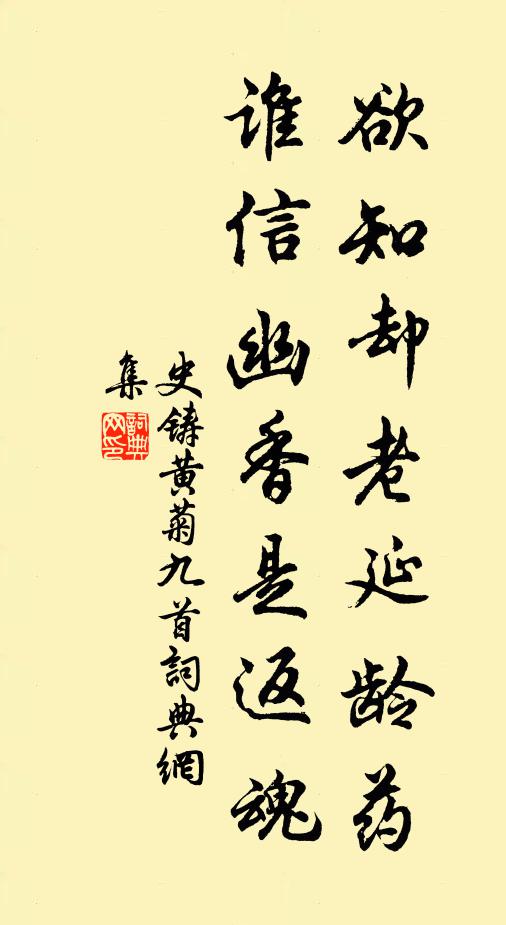 欲知却老延龄药
谁信幽香是返魂
史铸黄菊九首詞典網
集
詞典
网印